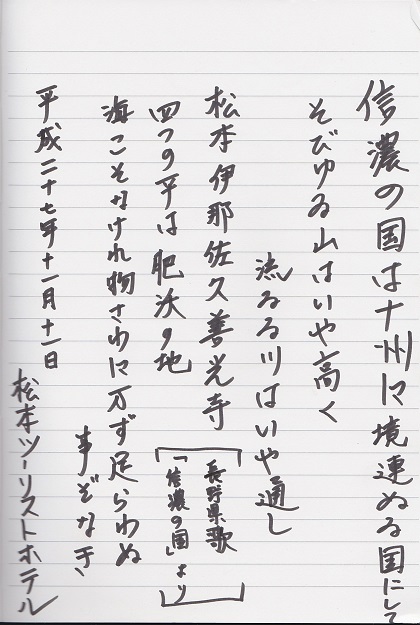 信濃の国は十州に境連ぬる国にして
そびゆる山はいや高く
流るる川はいや遠し
松本伊那佐久善光寺
四つの平は肥沃の地
海こそなけれ物さわに万ず足らわぬ
事ぞなき
長野県歌
「信濃の国」より
平成二十七年十一月十一日
松本ツーリストホテル